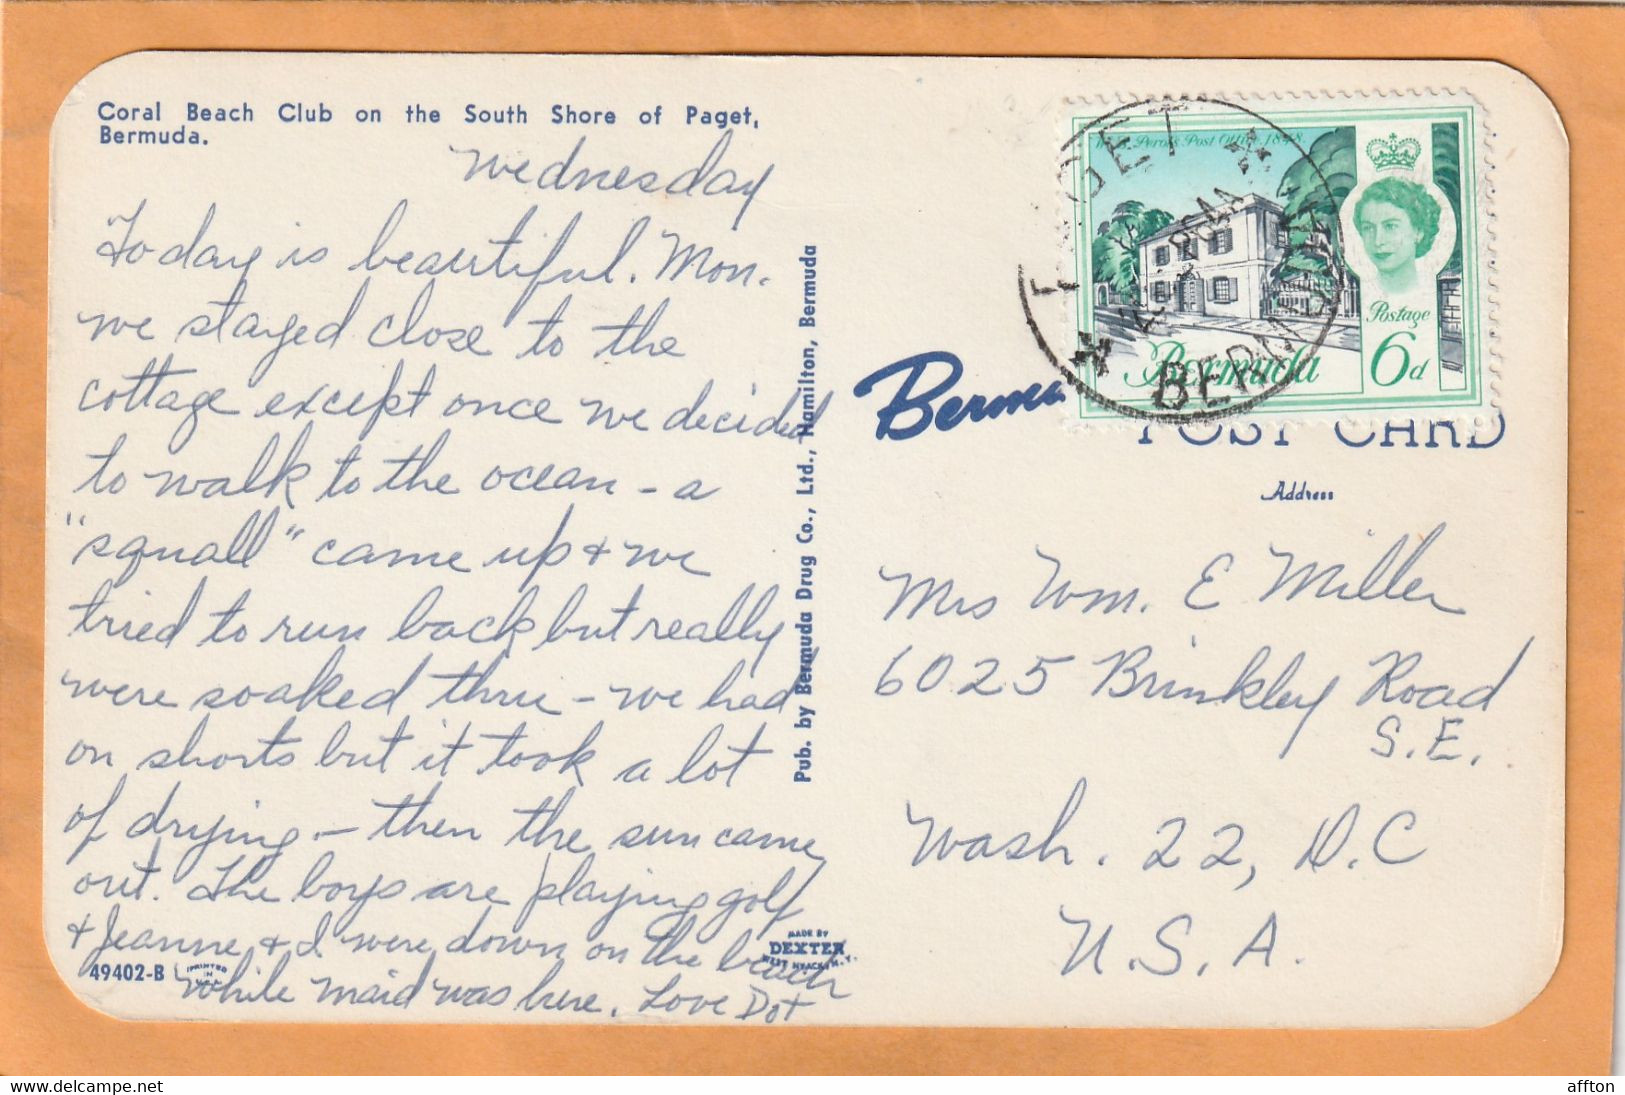 Coral Beach Club on the South Shore of Paget,
Bermuda.
Wednesday
Today is beautiful. Mon.
we stayed close to the
cottage except once we decided
to walk to the ocean - a
"squall" came up & we
tried to run back but really
were soaked thru - we had
on shorts but it took a lot
of drying - then the sun came
out. The boys are playing golf
& Jeanne & I were down on the beach
while maid was here. Love Dot
49402-B
PRINTED
IN
U.S.A.
MADE BY
DEXTER
WEST NYACK, N.Y.
Pub. by Bermuda Drug Co., Ltd., Hamilton, Bermuda
PAGET
BERMUDA
Perots Post Office, 1848
Postage
6d
Bermuda
POST CARD
Address
Mrs Wm. E Miller
6025 Brinkley Road
S.E.
Wash. 22, D.C
U.S.A.
delcampe.net
affton